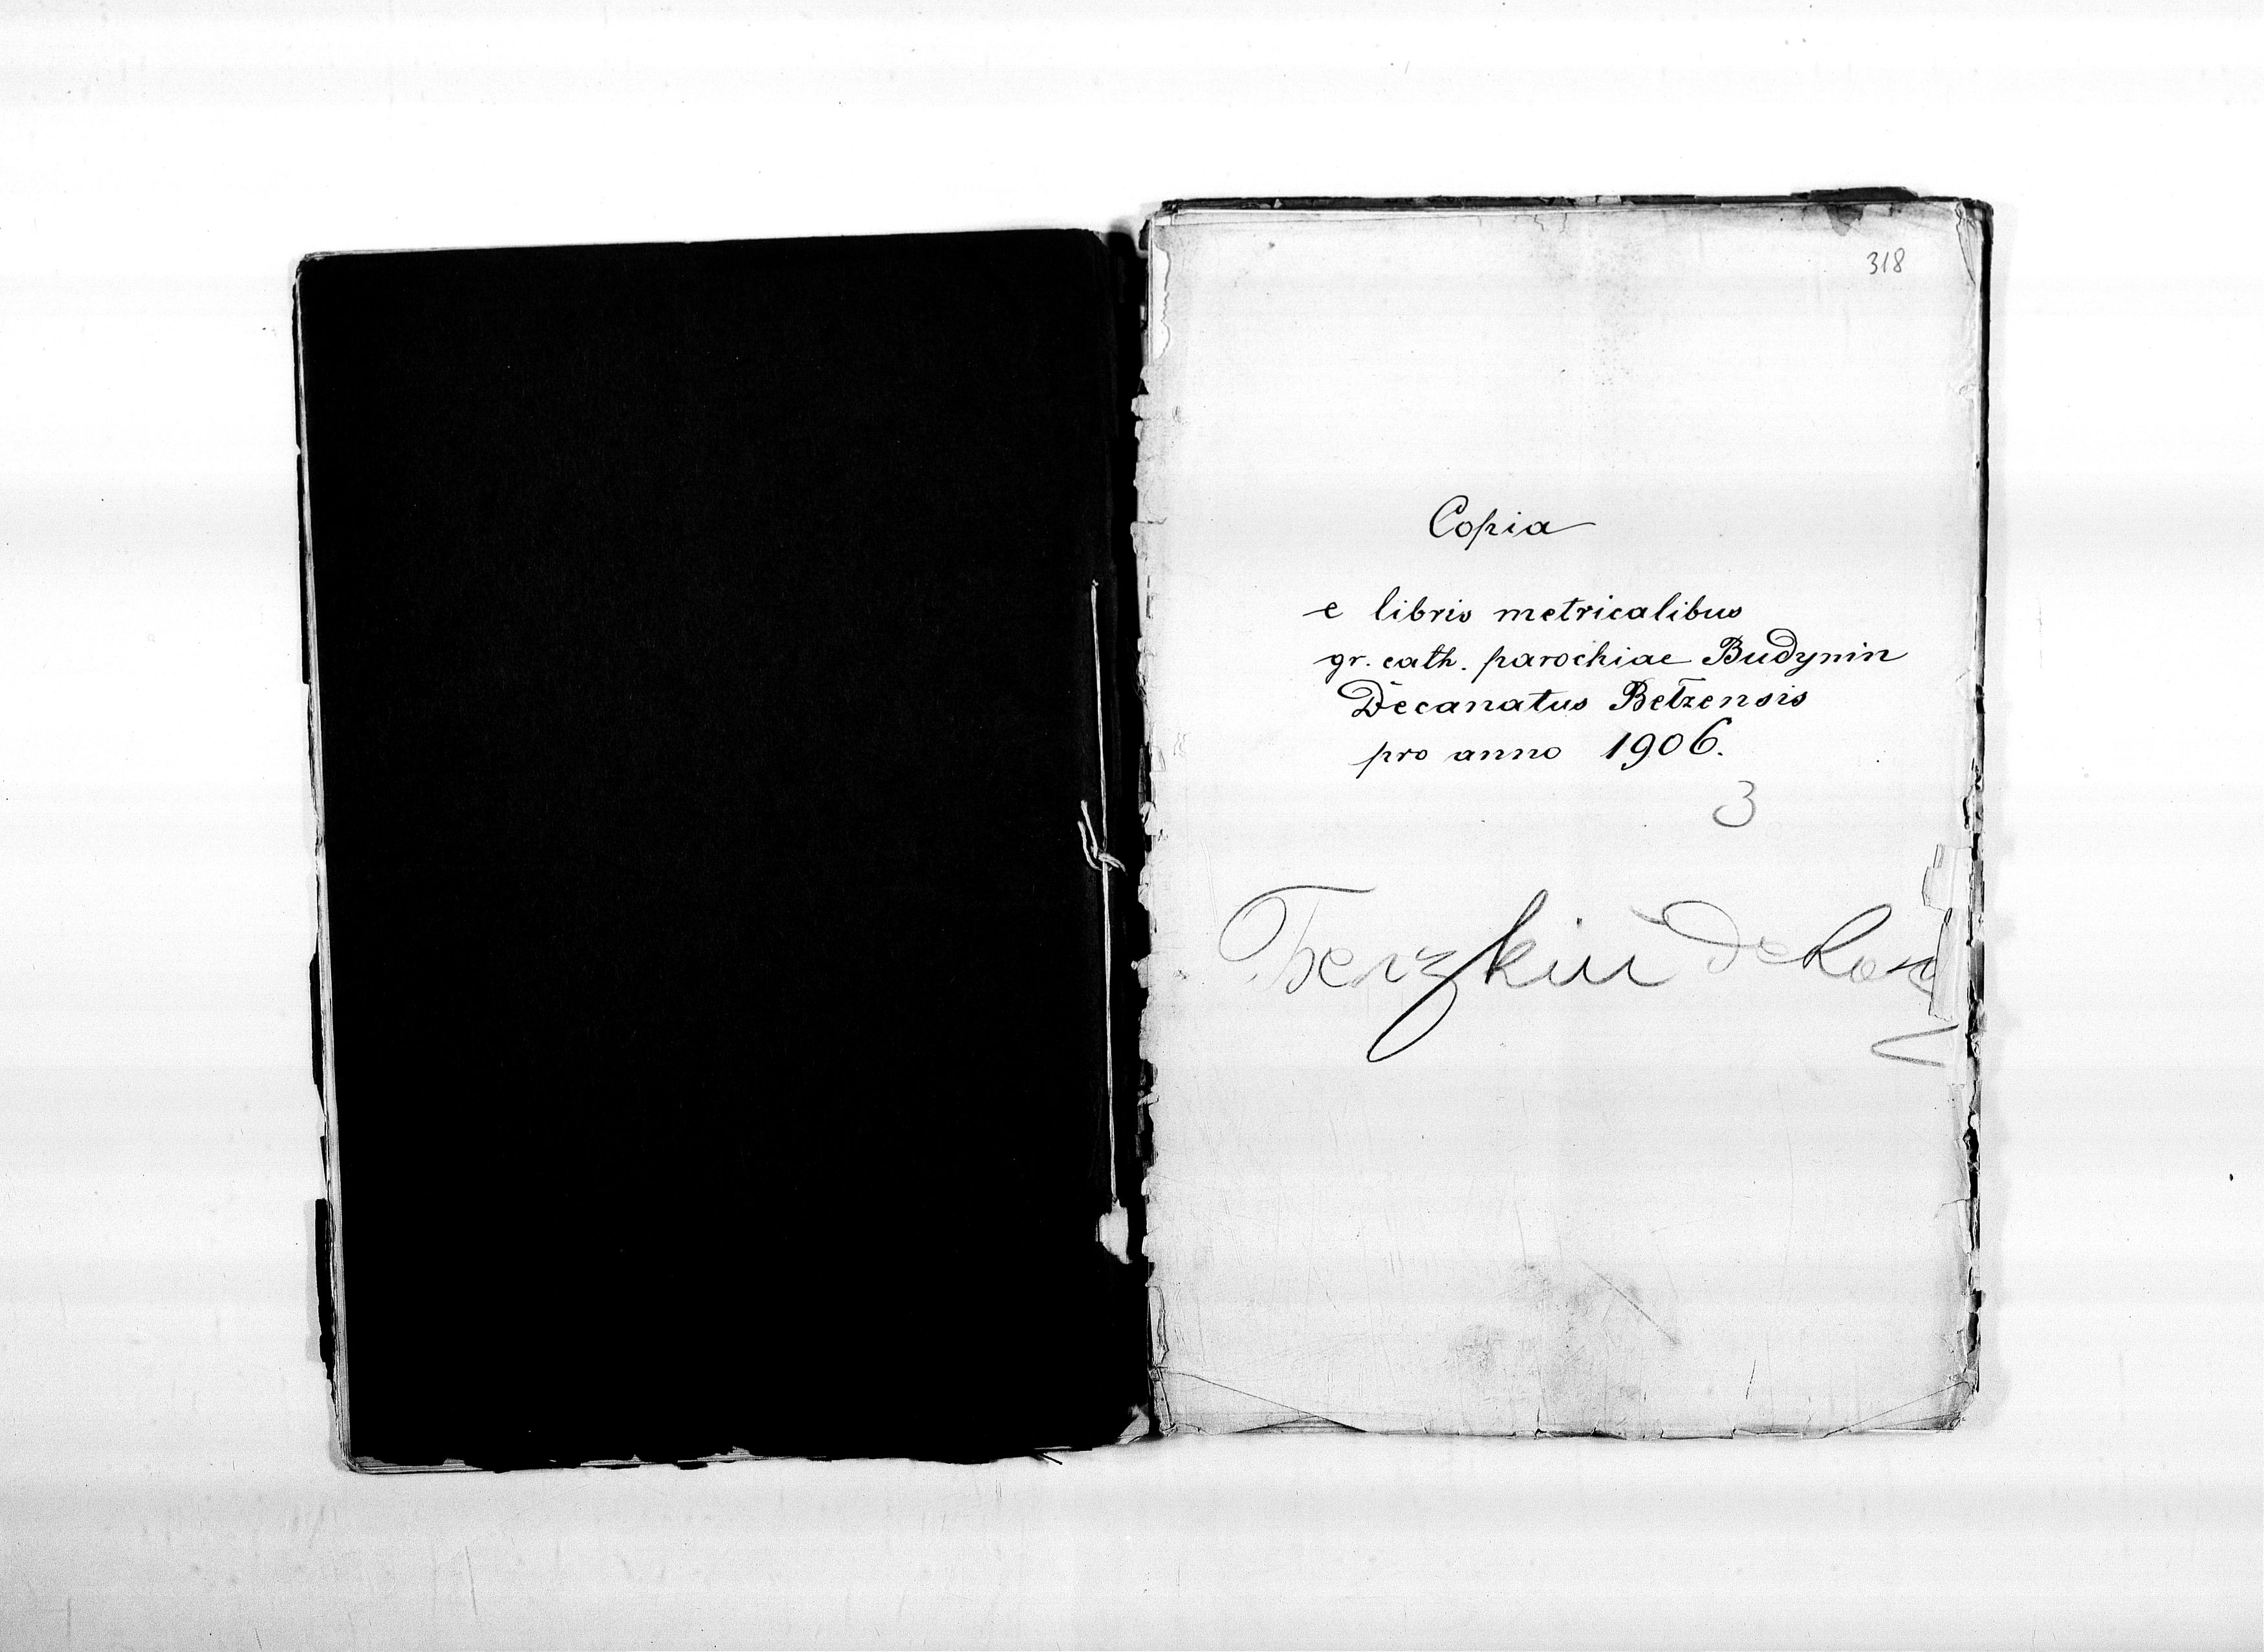 318
Copia
e libris metricalibus
gr. cath. parochiae Budynin
Decanatus Bełzensis
pro anno 1906.
3